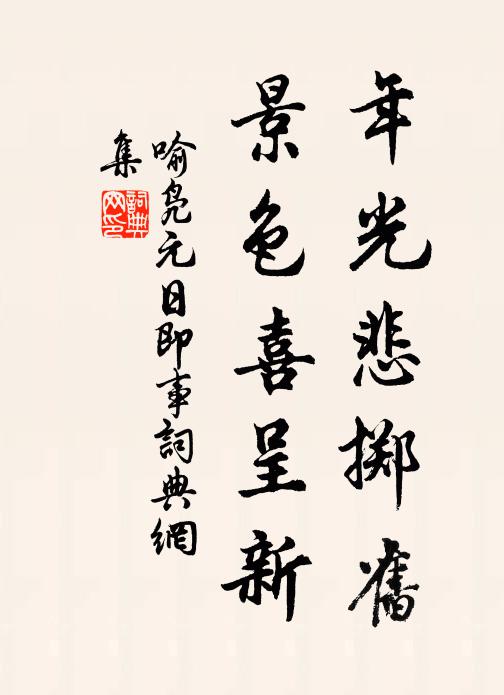 年光悲擲舊
景色喜呈新
喻亮元日即事詞典網
集
詞典
网印